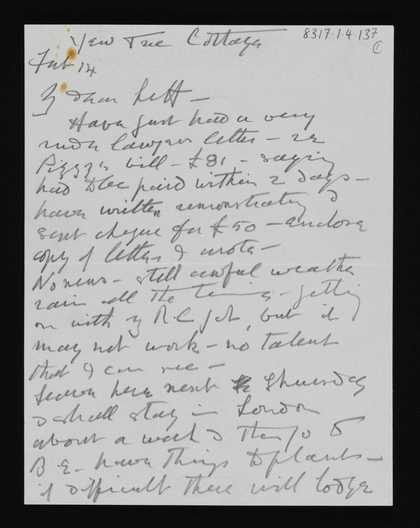 Yew Tree Cottage
8317.1.4.137
C
Feb 14
My dear Lett —
Have just had a very
rude lawyers letter — re
Peggy's bill — £81 — saying
had to be paid within 2 days —
have written remonstrating &
sent cheque for £50 — enclose
copy of letters I wrote —
No news — still awful weather
rain all the time — getting
on with my job, but it
may not work — no talent
that I can see —
Leave here next Thursday
& shall stay in London
about a week & then go to
B E — have things to plant —
if difficult there will lodge